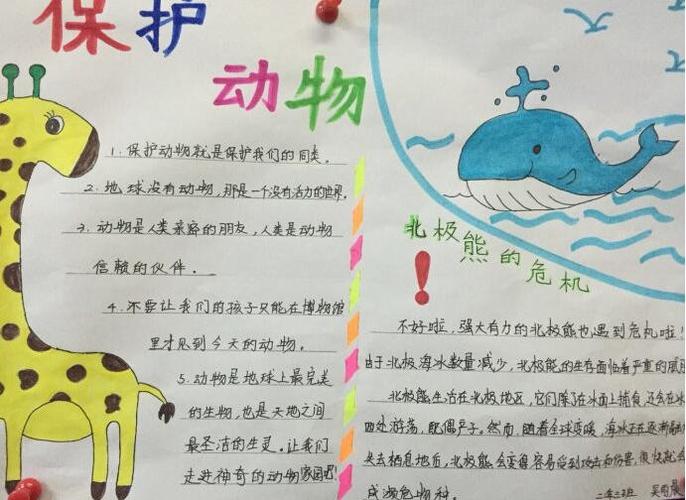 保护
动物
1. 保护动物就是保护我们的同类。
2. 地球没有动物，那是一个没有活力的世界。
3. 动物是人类亲密的朋友，人类是动物
信赖的伙伴。
4. 不要让我们的孩子只能在博物馆
里才见到今天的动物。
5. 动物是地球上最完美
的生物，也是天地之间
最圣洁的生灵。让我们
走进神奇的动物家园吧！
北极熊的危机！
不好啦，强大有力的北极熊也遇到危机啦！
由于北极海冰数量减少，北极熊的生存面临着严重的威胁
北极熊生活在北极地区，它们除了在冰面上捕食，还会在冰
四处游荡，配偶产子。然而，随着全球变暖，海冰正在逐渐融
失去栖息地后，北极熊会变得容易受到攻击和伤害，很快就会
成濒危物种。